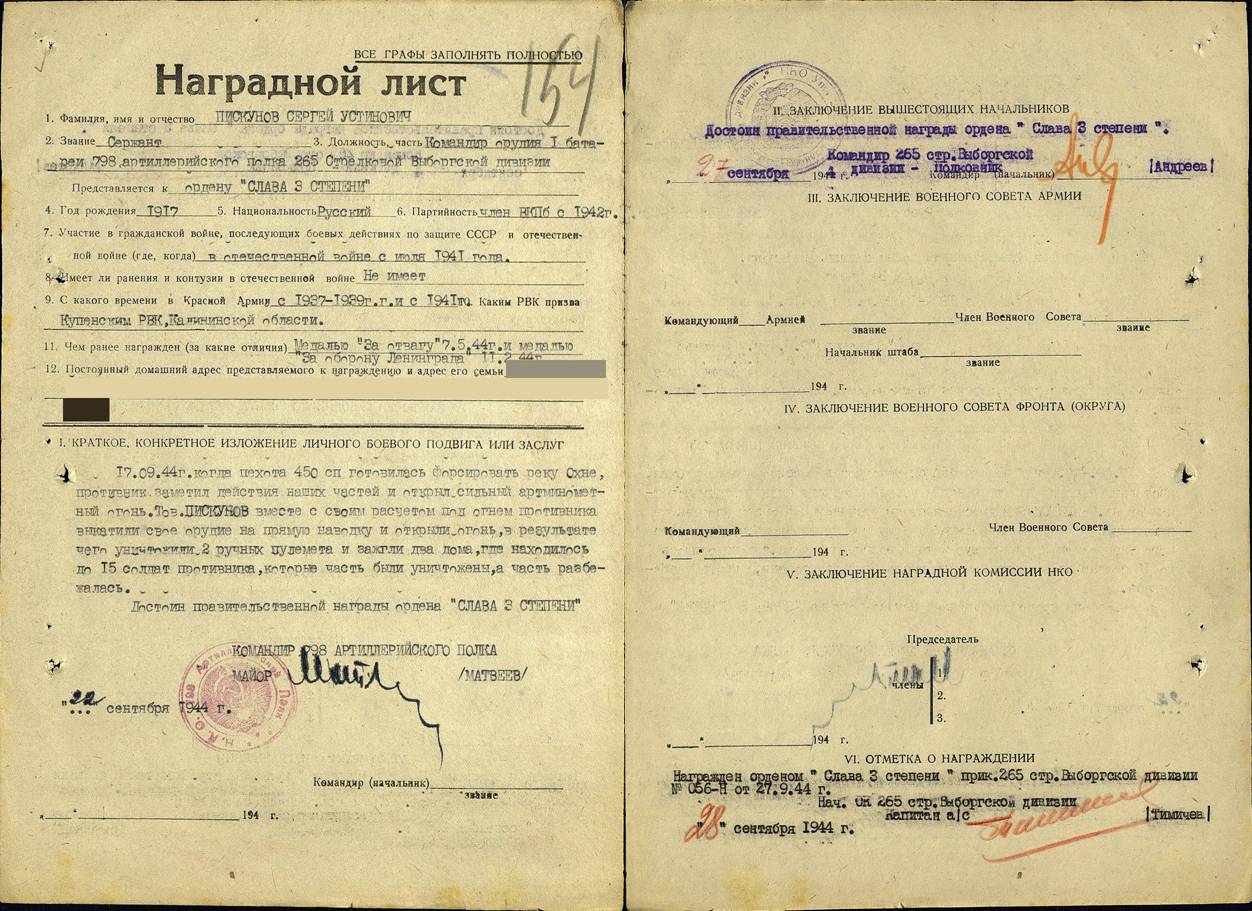 ВСЕ ГРАФЫ ЗАПОЛНЯТЬ ПОЛНОСТЬЮ
154
Наградной лист
1. Фамилия, имя и отчество ПИСКУНОВ СЕРГЕЙ УСТИНОВИЧ
2. Звание Сержант 3. Должность, часть Командир орудия I бата-
реи 798 артиллерийского полка 265 Стрелковой Выборгской дивизии
Представляется к ордену "СЛАВА 3 СТЕПЕНИ"
4. Год рождения 1917 5. Национальность Русский 6. Партийность член ВКПб с 1942г.
7. Участие в гражданской войне, последующих боевых действиях по защите СССР и отечествен-
ной войне (где, когда) в отечественной войне с июля 1941 года.
8. Имеет ли ранения и контузии в отечественной войне Не имеет
9. С какого времени в Красной Армии с 1937-1939г.г.и с 1941г. Каким РВК призва
Купенским РВК,Калининской области.
11. Чем ранее награжден (за какие отличия) Медалью "За отвагу"7.5.44г.и медалью
"За оборону Ленинграда" 11.2.44г
12. Постоянный домашний адрес представляемого к награждению и адрес его семьи
I. КРАТКОЕ, КОНКРЕТНОЕ ИЗЛОЖЕНИЕ ЛИЧНОГО БОЕВОГО ПОДВИГА ИЛИ ЗАСЛУГ
17.09.44г.когда пехота 450 сп готовилась форсировать реку Охне,
противник заметил действия наших частей и открыл сильный артминомет-
ный огонь.Тов.ПИСКУНОВ вместе с своим расчетом под огнем противника
выкатили свое орудие на прямую наводку и открыли огонь,в результате
чего уничтожили 2 ручных пулемета и зажгли два дома,где находилось
до 15 солдат противника,которые часть были уничтожены,а часть разбе-
жалась.
Достоин правительственной награды ордена "СЛАВА 3 СТЕПЕНИ"
КОМАНДИР 798 АРТИЛЛЕРИЙСКОГО ПОЛКА
МАЙОР /МАТВЕЕВ/
"22" сентября 1944 г.
Командир (начальник)
звание
" " 194 г.
II. ЗАКЛЮЧЕНИЕ ВЫШЕСТОЯЩИХ НАЧАЛЬНИКОВ
Достоин правительственной награды ордена " Слава 3 степени ".
Командир 265 стр.Выборгской
" 27 сентября 1944 г. дивизии - Полковник Командир (начальник) |Андреев|
III. ЗАКЛЮЧЕНИЕ ВОЕННОГО СОВЕТА АРМИИ
Командующий Армией Член Военного Совета
звание звание
Начальник штаба
звание
" " 194 г.
IV. ЗАКЛЮЧЕНИЕ ВОЕННОГО СОВЕТА ФРОНТА (ОКРУГА)
Командующий Член Военного Совета
" " 194 г.
V. ЗАКЛЮЧЕНИЕ НАГРАДНОЙ КОМИССИИ НКО
Председатель
члены
1.
2.
3.
" " 194 г.
VI. ОТМЕТКА О НАГРАЖДЕНИИ
Награжден орденом " Слава 3 степени " прик.265 стр.Выборгской дивизии
№ 056-Н от 27.9.44 г.
Нач. ОК 265 стр.Выборгской дивизии
Капитан а|с |Тимичев|
"28" сентября 1944 г.